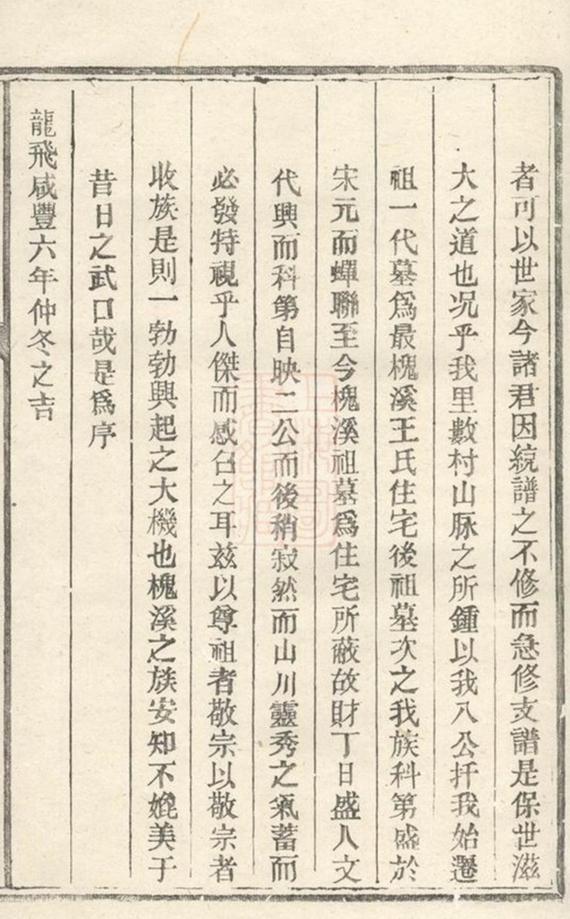 者可以世家今諸君因統譜之不修而急修支譜是保世滋
大之道也况乎我里數村山脉之所鍾以我八公扞我始遷
祖一代墓爲最槐溪王氏住宅後祖墓次之我族科第盛於
宋元而蟬聯至今槐溪祖墓爲住宅所蔽故財丁日盛人文
代興而科第自映二公而後稍寂然而山川靈秀之氣蓄而
必發特視乎人傑而感召之耳兹以尊祖者敬宗以敬宗者
收族是則一勃勃興起之大機也槐溪之族安知不媲美于
昔日之武口哉是爲序
龍飛咸豐六年仲冬之吉